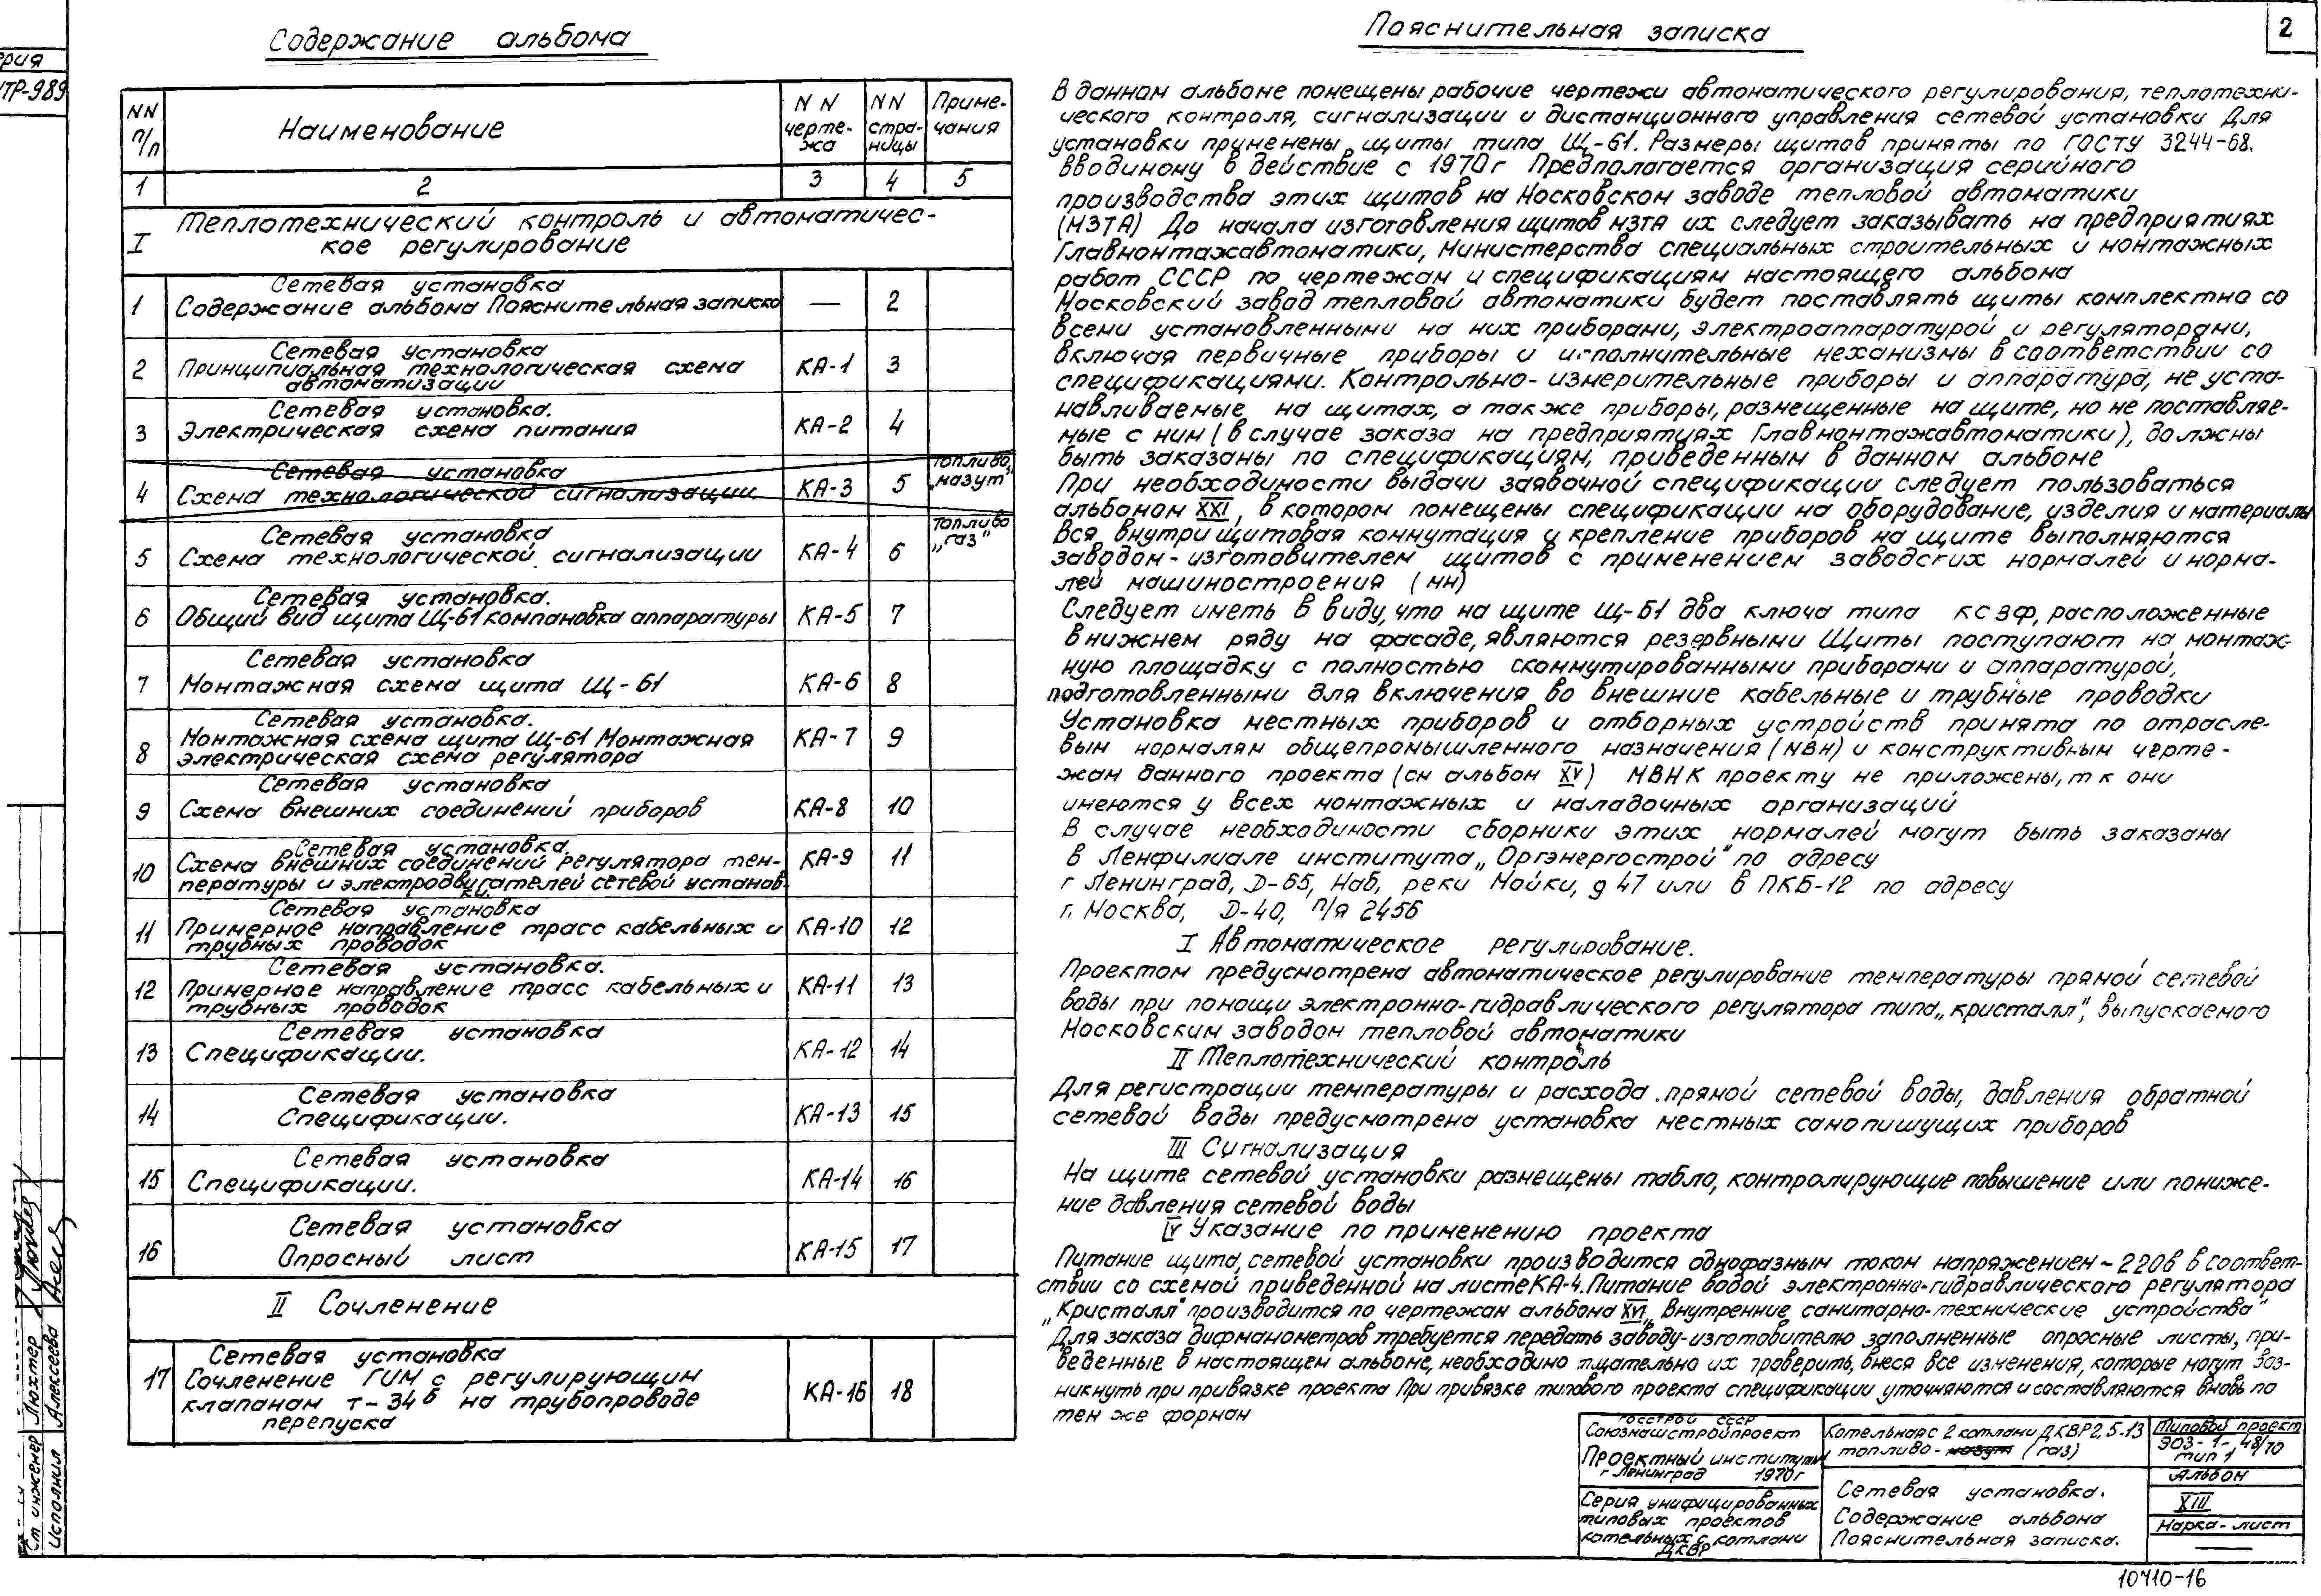 2
ерия
ТР-989
Содержание альбома
NN п/п
Наименование
NN чертежа
NN страницы
Примечания
1 2 3 4 5
I Теплотехнический контроль и автоматичес-
кое регулирование
Сетевая установка
1 Содержание альбома Пояснительная записка — 2
Сетевая установка
2 Принципиальная технологическая схема КА-1 3
автоматизации
Сетевая установка.
3 Электрическая схема питания КА-2 4
Сетевая установка топливо
4 Схема технологической сигнализации КА-3 5 „мазут"
Сетевая установка топливо
5 Схема технологической сигнализации КА-4 6 „газ"
Сетевая установка.
6 Общий вид щита Щ-61 компановка аппаратуры КА-5 7
Сетевая установка
7 Монтажная схема щита Щ-61 КА-6 8
Сетевая установка.
8 Монтажная схема щита Щ-61 Монтажная КА-7 9
электрическая схема регулятора
Сетевая установка
9 Схема внешних соединений приборов КА-8 10
Сетевая установка
10 Схема внешних соединений регулятора тем- КА-9 11
пературы и электродвигателей сетевой установ
ки
Сетевая установка
11 Примерное направление трасс кабельных и КА-10 12
трубных проводок
Сетевая установка.
12 Примерное направление трасс кабельных и КА-11 13
трубных проводок
Сетевая установка
13 Спецификации. КА-12 14
Сетевая установка
14 Спецификации. КА-13 15
Сетевая установка
15 Спецификации. КА-14 16
Сетевая установка
16 Опросный лист КА-15 17
II Сочленение
Сетевая установка
17 Сочленение ГИМ с регулирующим КА-16 18
клапаном т-34б на трубопроводе
перепуска
Пояснительная записка
В данном альбоме помещены рабочие чертежи автоматического регулирования, теплотехни-
ческого контроля, сигнализации и дистанционного управления сетевой установки Для
установки применены щиты типа Щ-61. Размеры щитов приняты по ГОСТу 3244-68.
вводимому в действие с 1970г Предполагается организация серийного
производства этих щитов на Московском заводе тепловой автоматики
(МЗТА) До начала изготовления щитов МЗТА их следует заказывать на предприятиях
Главмонтажавтоматики, Министерства специальных строительных и монтажных
работ СССР по чертежам и спецификациям настоящего альбома
Московский завод тепловой автоматики будет поставлять щиты комплектно со
всеми установленными на них приборами, электроаппаратурой и регуляторами,
включая первичные приборы и исполнительные механизмы в соответствии со
спецификациями. Контрольно-измерительные приборы и аппаратура, не уста-
навливаемые на щитах, а также приборы, размещенные на щите, но не поставляе-
мые с ним (в случае заказа на предприятиях Главмонтажавтоматики), должны
быть заказаны по спецификациям, приведенным в данном альбоме
При необходимости выдачи заявочной спецификации следует пользоваться
альбомом XXI, в котором помещены спецификации на оборудование, изделия и материалы
Вся внутрищитовая коммутация и крепление приборов на щите выполняются
заводом-изготовителем щитов с применением заводских нормалей и норма-
лей машиностроения (мн)
Следует иметь в виду, что на щите Щ-61 два ключа типа КСЗФ, расположенные
в нижнем ряду на фасаде, являются резервными Щиты поступают на монтаж-
ную площадку с полностью скоммутированными приборами и аппаратурой,
подготовленными для включения во внешние кабельные и трубные проводки
Установка местных приборов и отборных устройств принята по отрасле-
вым нормалям общепромышленного назначения (МВН) и конструктивным черте-
жам данного проекта (см альбом XV) МВН К проекту не приложены, т к они
имеются у всех монтажных и наладочных организаций
В случае необходимости сборники этих нормалей могут быть заказаны
в Ленфилиале института „Оргэнергострой" по адресу
г Ленинград, Д-65, Наб, реки Мойки, д 47 или в ПКБ-12 по адресу
г. Москва, Д-40, п/я 2456
I Автоматическое регулирование.
Проектом предусмотрена автоматическое регулирование температуры прямой сетевой
воды при помощи электронно-гидравлического регулятора типа „кристалл", выпускаемого
Московским заводом тепловой автоматики
II Теплотехнический контроль
Для регистрации температуры и расхода прямой сетевой воды, давления обратной
сетевой воды предусмотрена установка местных самопишущих приборов
III Сигнализация
На щите сетевой установки размещены табло, контролирующие повышение или пониже-
ние давления сетевой воды
IV Указание по применению проекта
Питание щита сетевой установки производится однофазным током напряжением ~ 220в в соответ-
ствии со схемой приведенной на листе КА-4. Питание водой электронно-гидравлического регулятора
„Кристалл" производится по чертежам альбома XVI „Внутренние санитарно-технические устройства"
Для заказа дифманометров требуется передать заводу-изготовителю заполненные опросные листы, при-
веденные в настоящем альбоме, необходимо тщательно их проверить, внеся все изменения, которые могут воз-
никнуть при привязке проекта При привязке типового проекта спецификации уточняются и составляются вновь по
тем же формам
Госстрой СССР
Союзмашстройпроект
Проектный институт
г Ленинград 1970г
Серия унифицированных
типовых проектов
котельных с котлами
ДКВР
Котельная с 2 котлами ДКВР 2,5-13
топливо - мазут (газ)
Сетевая установка.
Содержание альбома
Пояснительная записка.
Типовой проект
903-1-48/70
тип 1
Альбом
XIII
Марка-лист
Ст инженер Люхтер
Исполнил Алексеева
10710-16